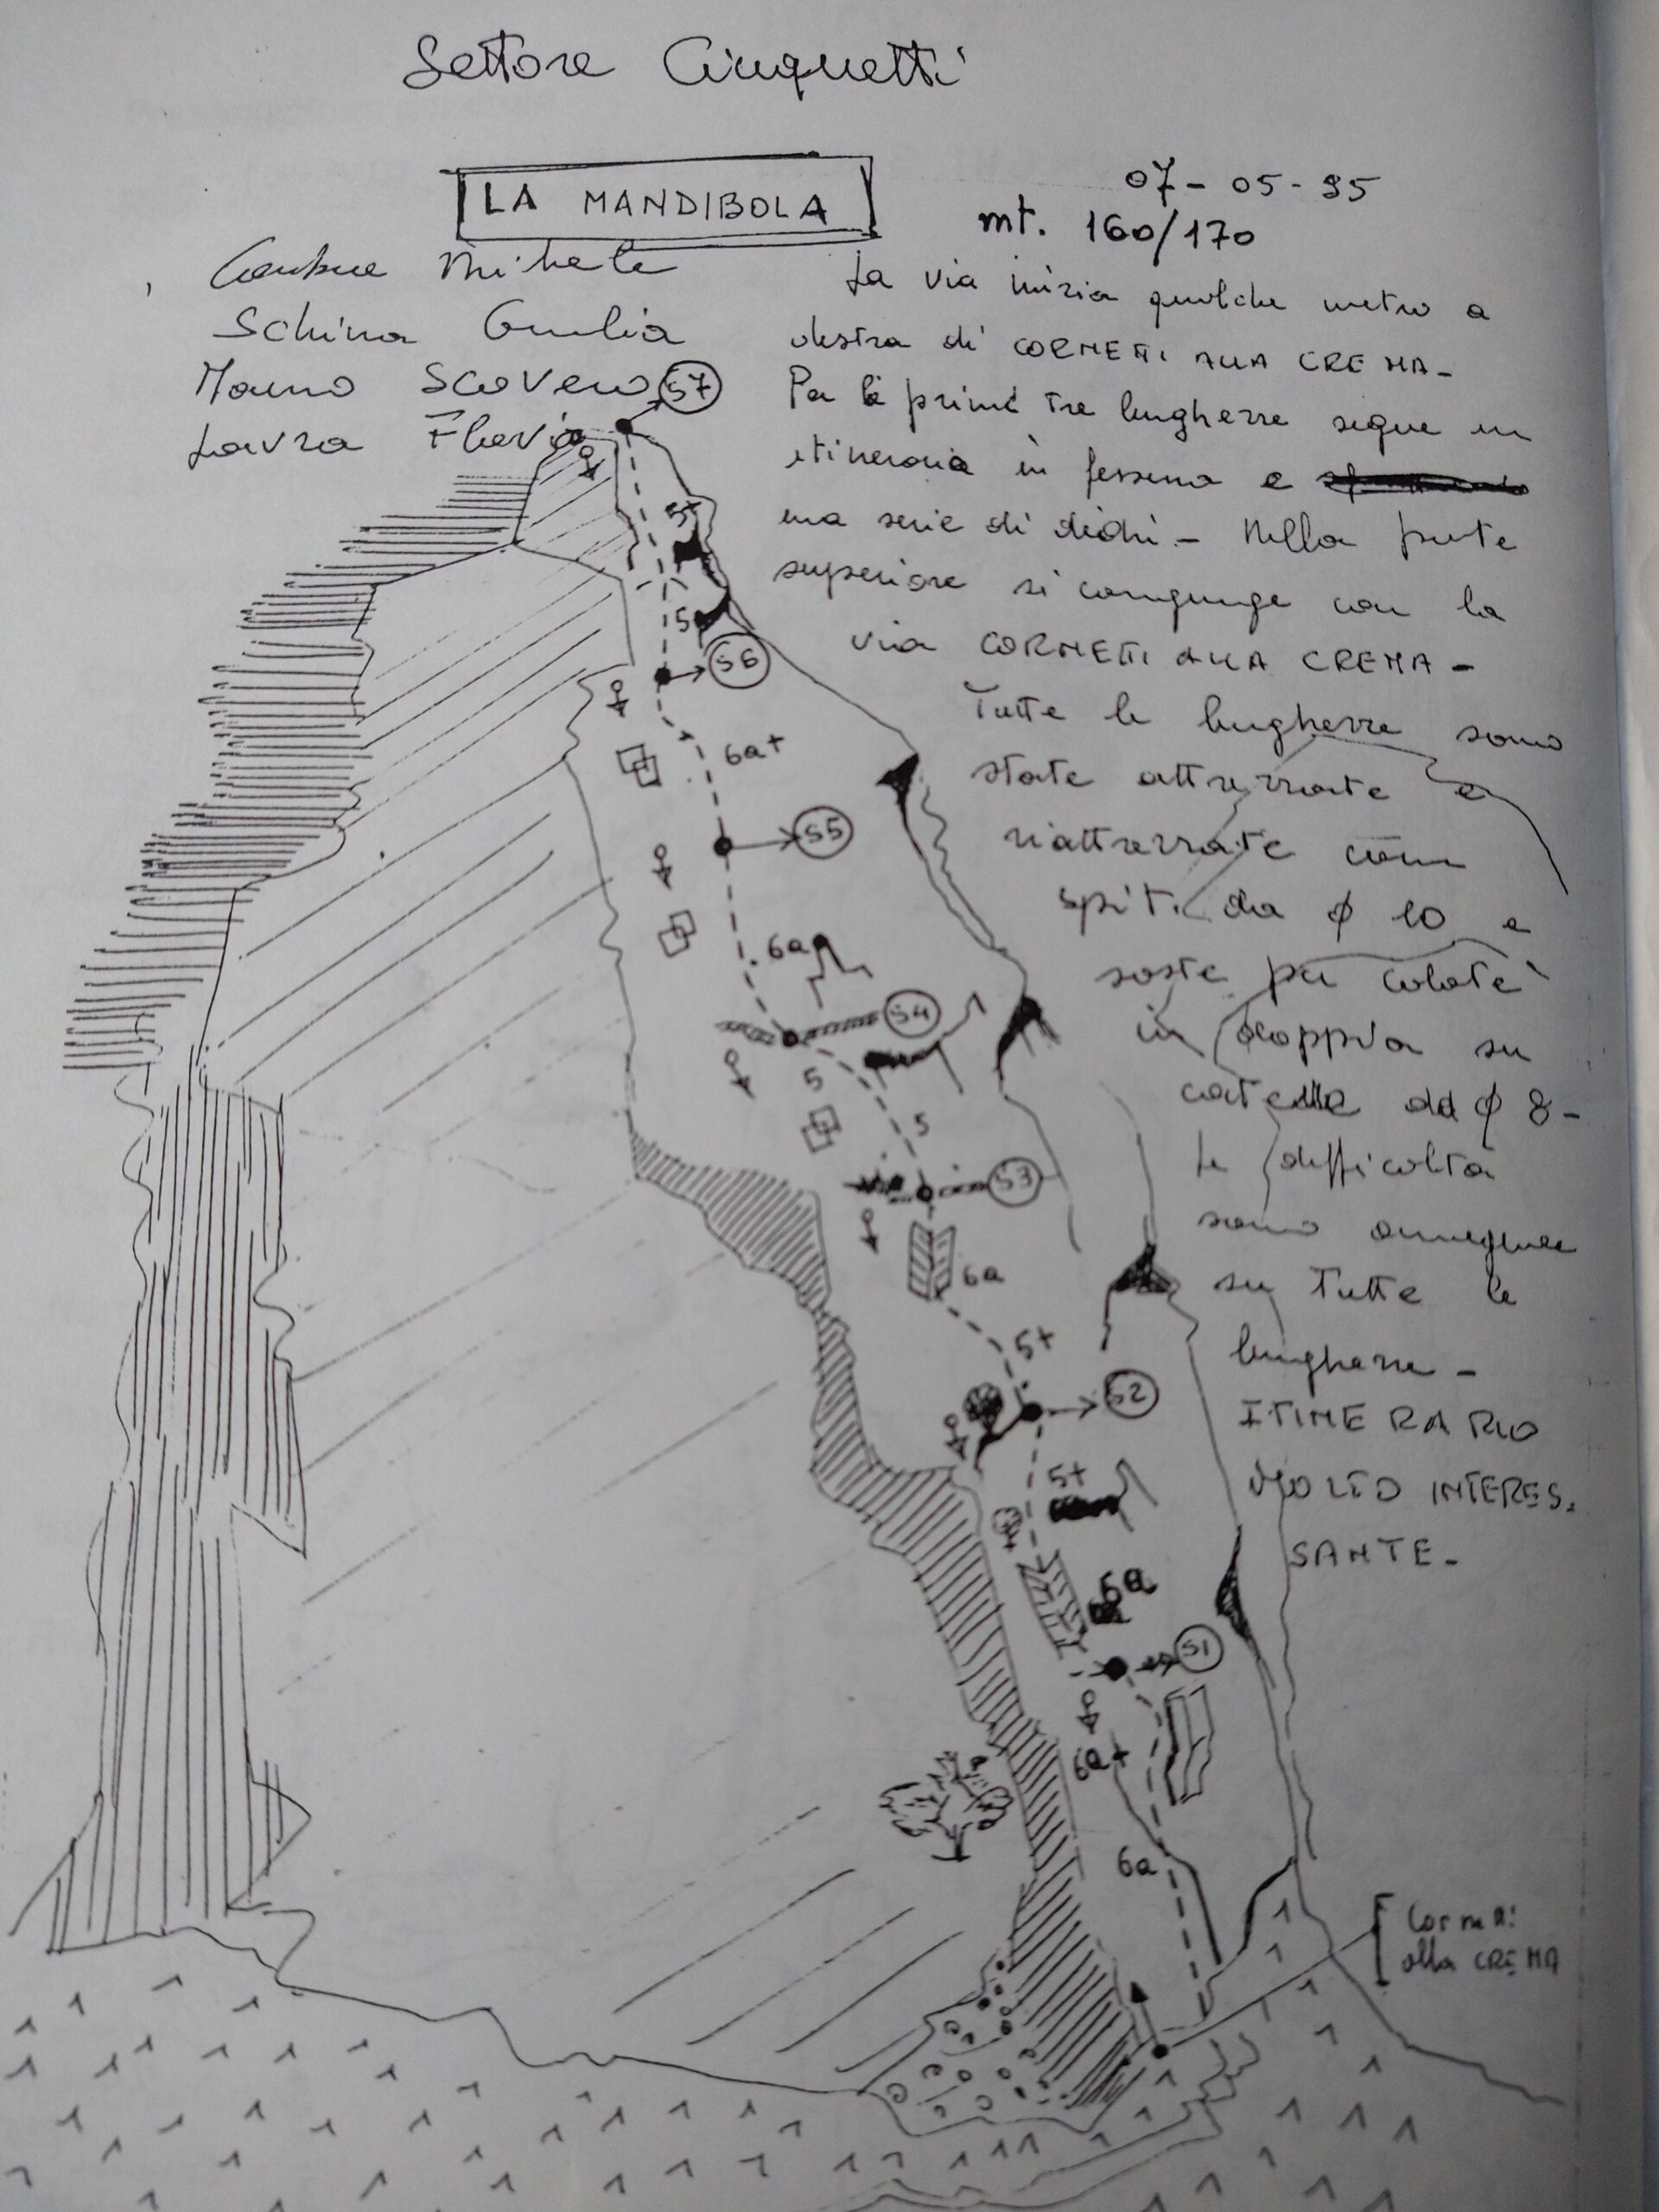 Settore Cinquetti
LA MANDIBOLA
07-05-95
mt. 160/170
Michele
Schina Giulia
Mauro Scovero
Laura Flavio
La via inizia qualche metro a
destra di CORNETTI ALLA CREMA-
Per le prime tre lunghezze segue un
itinerario in fessura e
una serie di diedri- Nella parte
superiore si congiunge con la
via CORNETTI ALLA CREMA-
Tutte le lunghezze sono
state attrezzate e
riattrezzate con
spit da ϕ 10 e
soste per calate
in doppia su
catena da ϕ 8-
Le difficoltà
sono omogenee
su Tutte le
lunghezze-
ITINERARIO
MOLTO INTERES.
SANTE-
S7
5+
5
S6
6a+
S5
6a
S4
5
5
S3
6a
5+
S2
5+
6a
S1
6a+
6a
Cornetti
alla CREMA